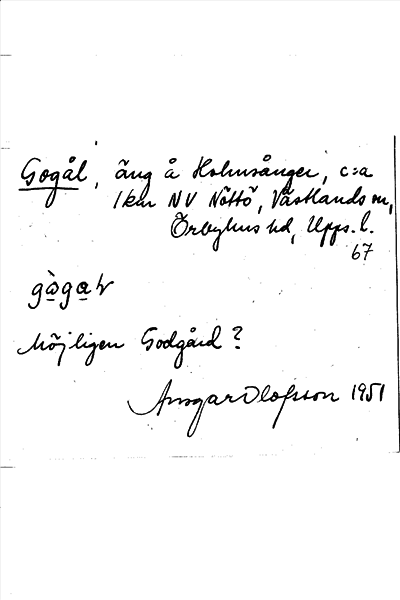 Gogål, äng å Holmsånger, c:a
1 km NV Nöttö, Västlands sn,
Örbyhus hd, Upps. l.
67
Möjligen Godgård?
Ansgar Olofsson 1951